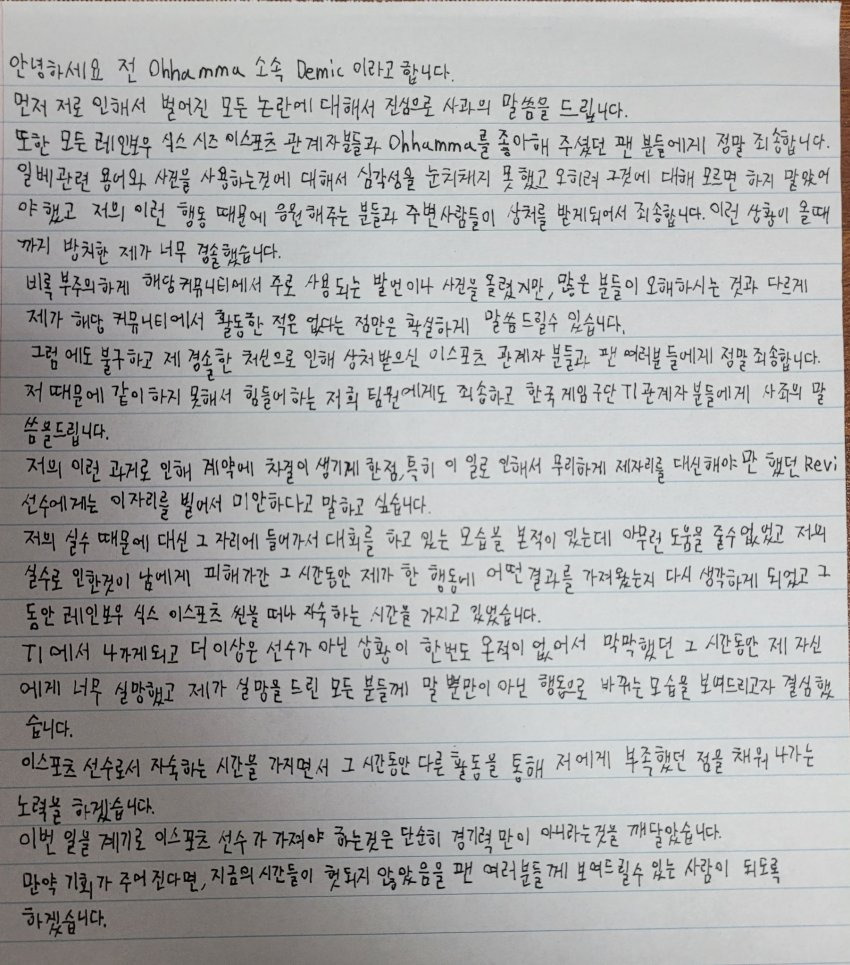 안녕하세요 전 Ohhamma 소속 Demic 이라고 합니다.
먼저 저로 인해서 벌어진 모든 논란에 대해서 진심으로 사과의 말씀을 드립니다.
또한 모든 레인보우 식스 시즈 이스포츠 관계자분들과 Ohhamma를 좋아해 주셨던 팬 분들에게 정말 죄송합니다.
일베관련 용어와 사진을 사용하는것에 대해서 심각성을 눈치채지 못했고 오히려 그것에 대해 모르면 하지 말았어
야했고 저의 이런 행동 때문에 응원해주는 분들과 주변사람들이 상처를 받게되어서 죄송합니다. 이런 상황이 올때
까지 방치한 제가 너무 경솔했습니다.
비록 부주의하게 해당커뮤니티에서 주로 사용되는 발언이나 사진을 올렸지만, 많은 분들이 오해하시는 것과 다르게
제가 해당 커뮤니티에서 활동한 적은 없다는 점만은 확실하게 말씀드릴수 있습니다.
그럼에도 불구하고 제 경솔한 처신으로 인해 상처받으신 이스포츠 관계자 분들과 팬 여러분들에게 정말 죄송합니다.
저 때문에 같이하지 못해서 힘들어하는 저희 팀원에게도 죄송하고 한국게임구단 T1관계자분들에게 사죄의 말
씀을드립니다.
저의 이런 과거로 인해 계약에 차질이 생기게 한점, 특히 이 일로 인해서 무리하게 제자리를 대신해야만 했던 Revi
선수에게는 이자리를 빌어서 미안하다고 말하고 싶습니다.
저의 실수 때문에 대신 그 자리에 들어가서 대회를 하고 있는 모습을 본적이 있는데 아무런 도움을 줄수없었고 저의
실수로 인한것이 남에게 피해가간 그 시간동안 제가 한 행동에 어떤 결과를 가져왔는지 다시 생각하게 되었고 그
동안 레인보우 식스 이스포츠 씬을 떠나 자숙하는 시간을 가지고 있었습니다.
T1에서 나가게되고 더 이상은 선수가 아닌 상황이 한번도 온적이 없어서 막막했던 그 시간동안 제 자신
에게 너무 실망했고 제가 실망을 드린 모든 분들께 말 뿐만이 아닌 행동으로 바뀌는 모습을 보여드리고자 결심했
습니다.
이스포츠 선수로서 자숙하는 시간을 가지면서 그 시간동안 다른 활동을 통해 저에게 부족했던 점을 채워나가는
노력을 하겠습니다.
이번 일을 계기로 이스포츠 선수가 가져야 하는것은 단순히 경기력만이 아니라는것을 깨달았습니다.
만약 기회가 주어진다면, 지금의시간들이 헛되지 않았음을 팬 여러분들께 보여드릴수 있는 사람이 되도록
하겠습니다.